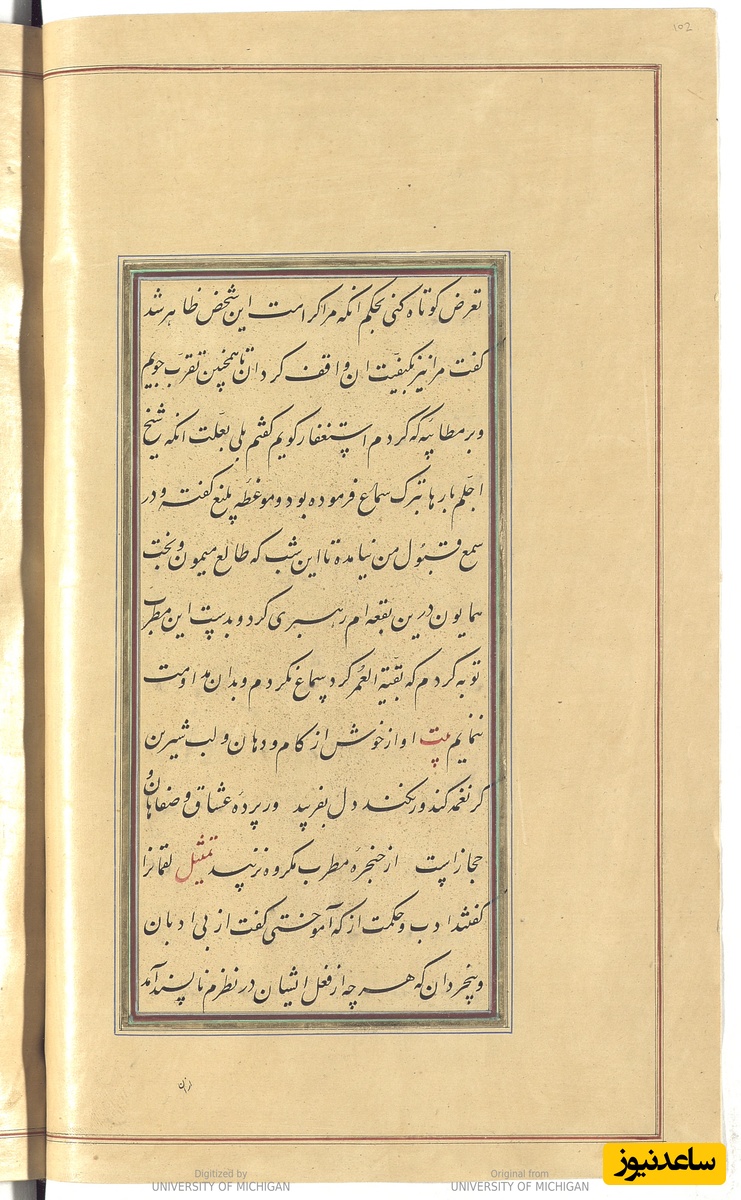 102
تعرض کوتاه کنی بحکم آنکه مرا کرامت این شخص ظاهر شد
گفت مرا نیز بکیفیت آن واقف گردان تا همچنین تقرب جویم
و بر مطایبه که کردم استغفار گویم گفتم بلی بعلت آنکه شیخ
اجلم بارها بترک سماع فرموده بود و موعظه بلیغ گفته و در
سمع قبول من نیامده تا این شب که طالع میمون و بخت
همایون درین بقعه‌ام رهبری کرد و بدست این مطرب
توبه کردم که بقیة العمر گرد سماع نگردم و بدان مداومت
ننمایم بیت آواز خوش از کام و دهان و لب شیرین
گر نغمه کند ور نکند دل بفریبد ور پرده عشاق و صفاهان و
حجازاست از حنجره مطرب مکروه نزیبد تمثیل لقمانرا
گفتند ادب و حکمت از که آموختی گفت از بی ادبان
و بیخردان که هر چه از فعل ایشان در نظرم ناپسند آمد
از آن
Digitized by
UNIVERSITY OF MICHIGAN
Original from
UNIVERSITY OF MICHIGAN
ساعدنیوز